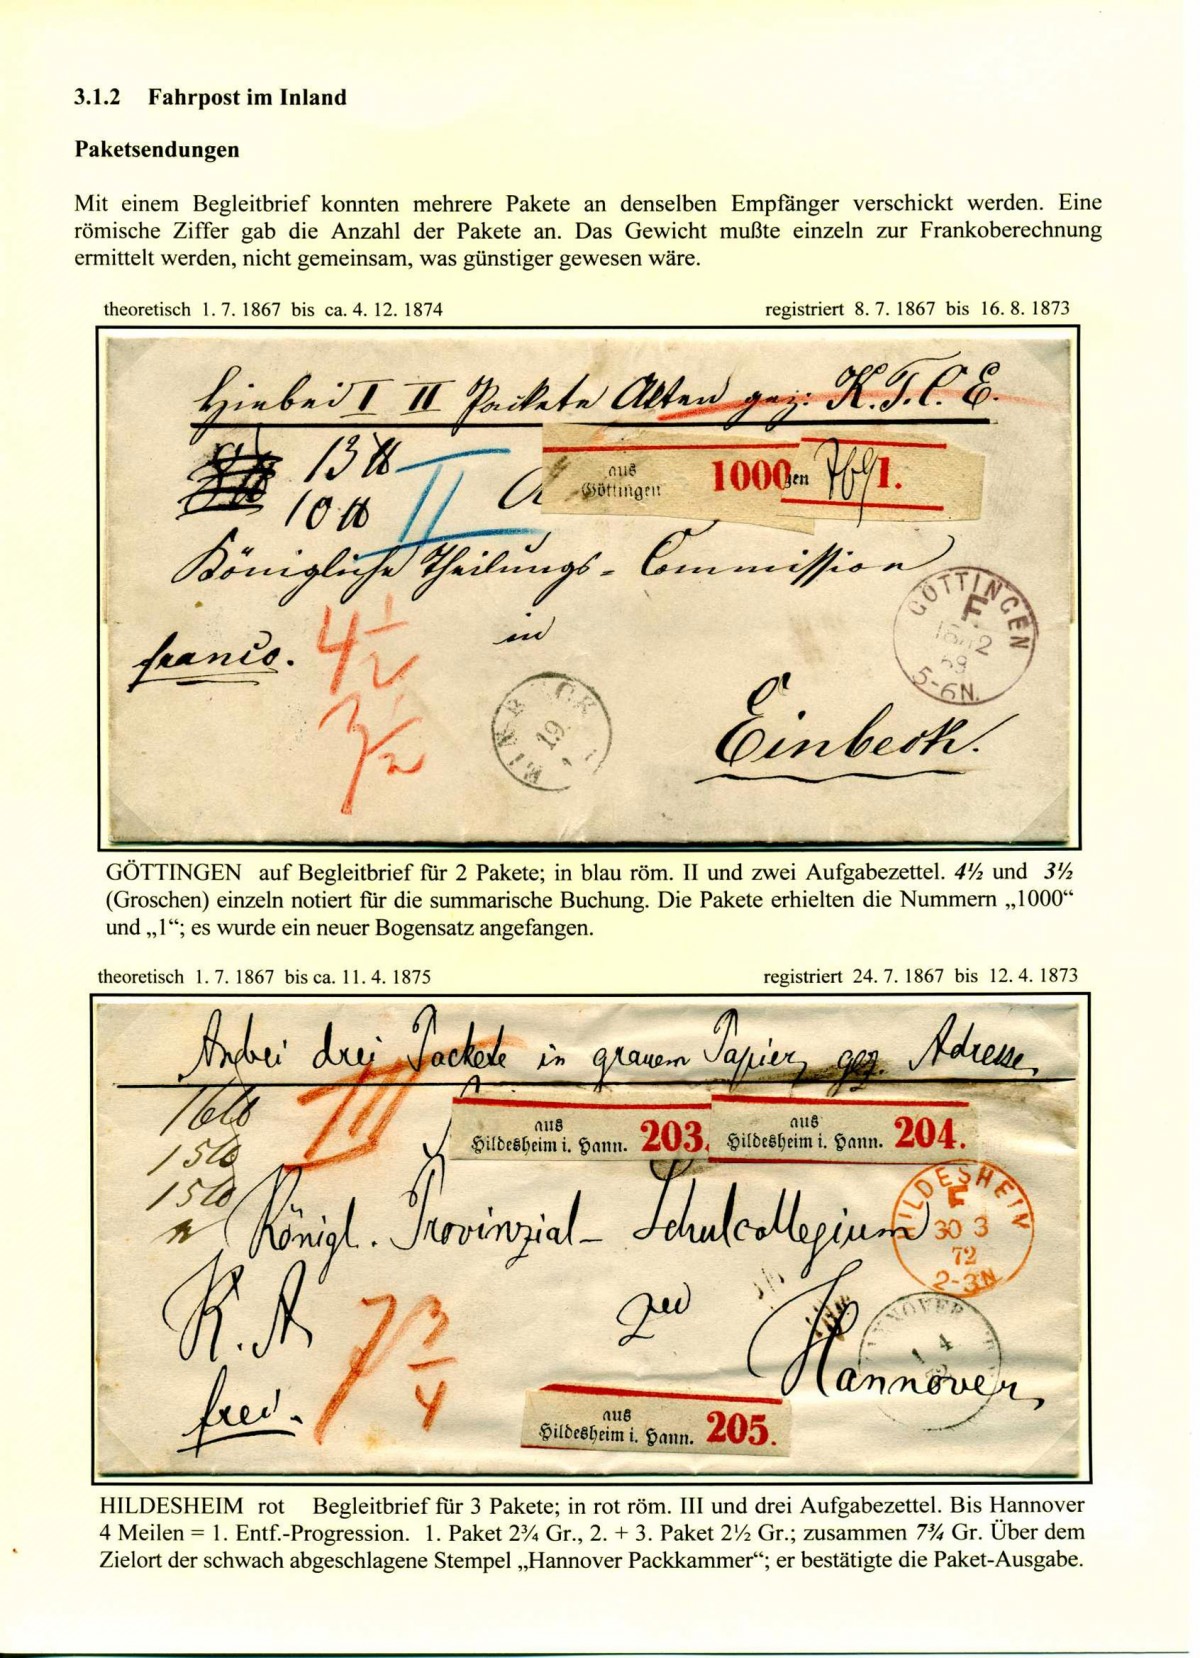 3.1.2 Fahrpost im Inland
Paketsendungen
Mit einem Begleitbrief konnten mehrere Pakete an denselben Empfänger verschickt werden. Eine
römische Ziffer gab die Anzahl der Pakete an. Das Gewicht mußte einzeln zur Frankoberechnung
ermittelt werden, nicht gemeinsam, was günstiger gewesen wäre.
theoretisch 1. 7. 1867 bis ca. 4. 12. 1874 registriert 8. 7. 1867 bis 16. 8. 1873
Hiebei I II Packete Akten gez: K. T. C. E.
13 ℔
10 ℔ II
aus
Göttingen 1000
gen 1.
Königliche Theilungs-Commission
in
franco.
4 1/2
3 1/2
EINBECK
19
GÖTTINGEN
F
18 12
69
5-6N.
Einbeck.
GÖTTINGEN auf Begleitbrief für 2 Pakete; in blau röm. II und zwei Aufgabezettel. 4½ und 3½
(Groschen) einzeln notiert für die summarische Buchung. Die Pakete erhielten die Nummern „1000“
und „1“; es wurde ein neuer Bogensatz angefangen.
theoretisch 1. 7. 1867 bis ca. 11. 4. 1875 registriert 24. 7. 1867 bis 12. 4. 1873
Anbei drei Packete in grauem Papier, gez. Adresse
16 ℔
15 ℔
15 ℔
III
aus
Hildesheim i. Hann. 203.
aus
Hildesheim i. Hann. 204.
Königl. Provinzial-Schulcollegium
HILDESHEIM
F
30 3
72
2-3N
K. A.
zu
Hannover
7 3/4
frei.
HANNOVER
1 4
aus
Hildesheim i. Hann. 205.
HILDESHEIM rot Begleitbrief für 3 Pakete; in rot röm. III und drei Aufgabezettel. Bis Hannover
4 Meilen = 1. Entf.-Progression. 1. Paket 2¾ Gr., 2. + 3. Paket 2½ Gr.; zusammen 7¾ Gr. Über dem
Zielort der schwach abgeschlagene Stempel „Hannover Packkammer“; er bestätigte die Paket-Ausgabe.